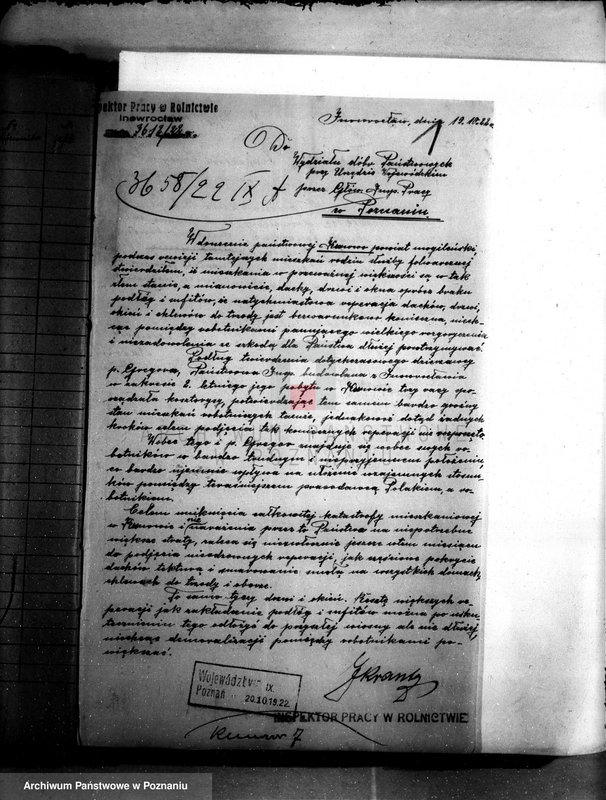 Inspektor Pracy w Rolnictwie
Inowrocław
3612/22
Inowrocław, dnia 19.10.22
Do
Wydziału dóbr Państwowych
przy Urzędzie Wojewódzkim
przez Główn. Insp. Pracy
w Poznaniu.
3658/22 IX A
W domenie państwowej Kunowo powiat mogileński,
podczas rewizji tamtejszych mieszkań rodzin służby folwarcznej
stwierdziłem, iż mieszkania w przeważnej większości są w tak
złem stanie, a mianowicie, dachy, drzwi i okna oprócz braku
podłóg i sufitów, że natychmiastowa reperacja dachów, drzwi,
okien i chlewów do trzody jest bezwarunkowo konieczna, niech-
cąc pomiędzy robotnikami panującego wielkiego rozgoryczenia
i niezadowolenia ze szkodą dla Państwa dłużej podtrzymywać.
Podług twierdzenia dotychczasowego dzierżawcy
p. Gregora, Państwowa Insp. budowlana z Inowrocławia
w zakresie 2. letniego jego pobytu w Kunowie trzy razy spo-
rządzała kosztorysy, potwierdzając tem samem bardzo groźny
stan mieszkań robotniczych tamże, jednakowoż dotąd żadnych
kroków celem podjęcia tak koniecznych reperacji nie rozpoczęto.
Wobec tego i p. Gregor znajduje się wobec swych ro-
botników w bardzo trudnym i nieprzyjemnem położeniu,
co bardzo ujemnie wpływa na istnienie wzajemnych stosun-
ków pomiędzy terażniejszym pracodawcą Polakiem, a ro-
botnikiem.
Celem uniknięcia całkowitej katastrofy mieszkaniowej
w Kunowie i nie narażenia przez to Państwa na niepotrzebne
większe straty, zaleca się niezwłocznie jeszcze w tem miesiącu
do podjęcia nieodzownych reperacji, jak częściowe pokrycie
dachów tekturą i smarowanie smołą na wszystkich domach,
chlewach do trzody i oborze.
To samo tyczy drzwi i okien. Resztę większych re-
peracji jak zakładanie podłóg i sufitów można po
tego odłożyć do przyszłej wiosny ale nie dłużej,
niechcąc demoralizacji pomiędzy robotnikami po-
większać.
JKrantz
INSPEKTOR PRACY W ROLNICTWIE
Województwo IX.
Poznań 20.10.1922.
Kunowo 7
Archiwum Państwowe w Poznaniu